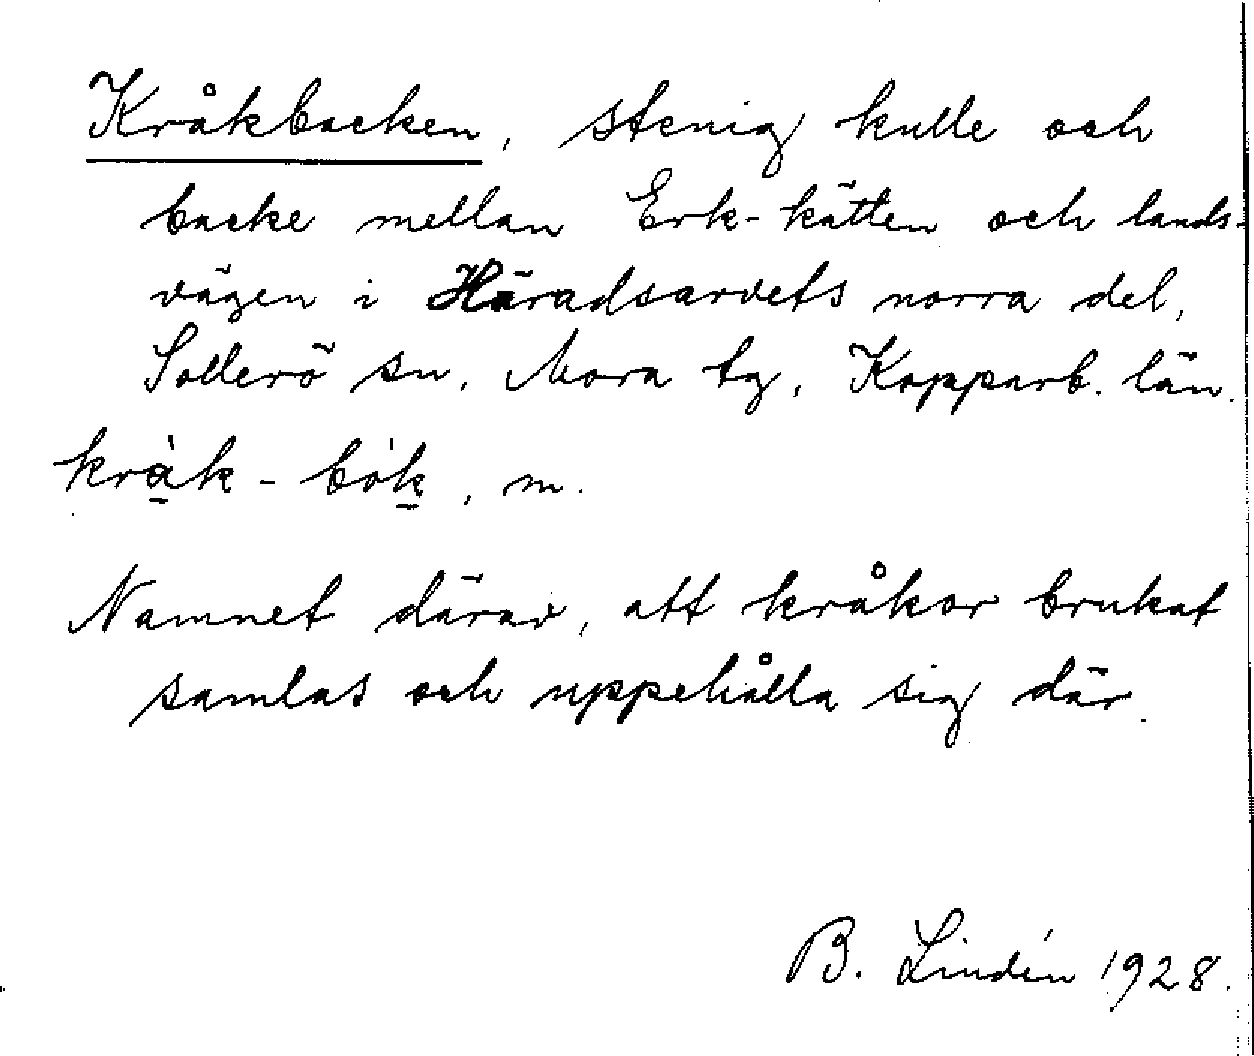 Kråkbacken, stenig kulle och
backe mellan Erk-kätten och lands-
vägen i Häradsarvets norra del,
Sollerö sn, Mora tg, Kopparb. län.
kràk - bòk, m.
Namnet därav, att kråkor brukat
samlas och uppehålla sig där.
B. Lindén 1928.